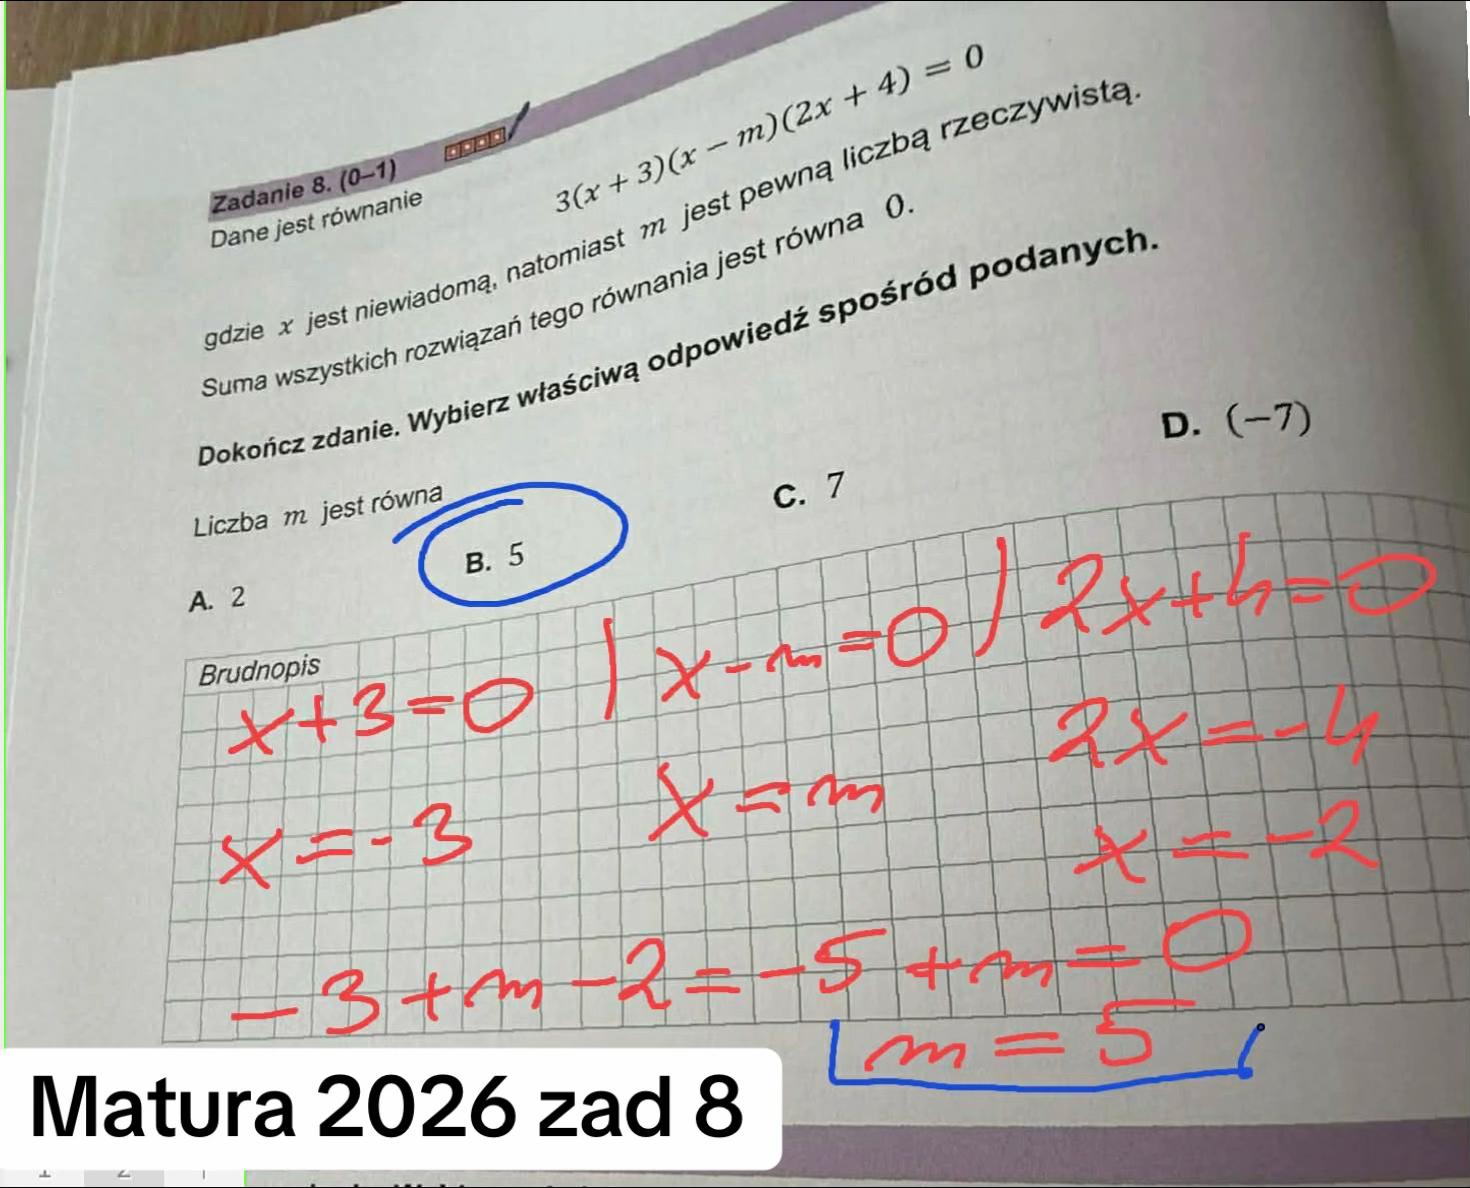 Zadanie 8. (0–1)
Dane jest równanie
3(x + 3)(x − m)(2x + 4) = 0
gdzie x jest niewiadomą, natomiast m jest pewną liczbą rzeczywistą.
Suma wszystkich rozwiązań tego równania jest równa 0.
Dokończ zdanie. Wybierz właściwą odpowiedź spośród podanych.
Liczba m jest równa
A. 2 B. 5 C. 7 D. (−7)
Brudnopis
x+3=0 | x-m=0 | 2x+4=0
2x=-4
x=-3 x=m x=-2
-3+m-2=-5+m=0
m=5
Matura 2026 zad 8